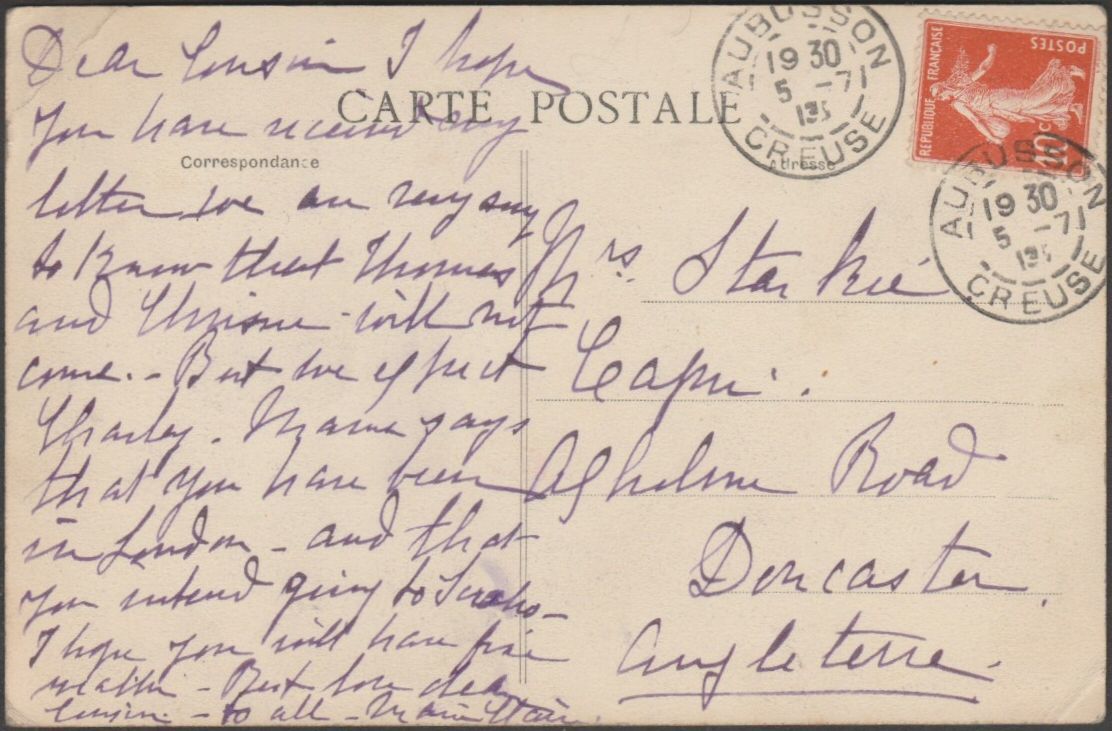 CARTE POSTALE
Correspondance
Adresse
Dear Cousin I hope
you have received my
letter we are very sorry
to know that Thomas
and will not
come. - But we expect
Charley. Mama says
that you have been
in London - and that
you intend going to
I hope you will have fine
weather - Best love dear
cousin - to all - Marie
Mrs Starkie
Capri.
Road
Doncaster.
Angleterre.
AUBUSSON
19 30
5 - 7
CREUSE
REPUBLIQUE FRANÇAISE
POSTES
10c
AUBUSSON
19 30
5 - 7
CREUSE